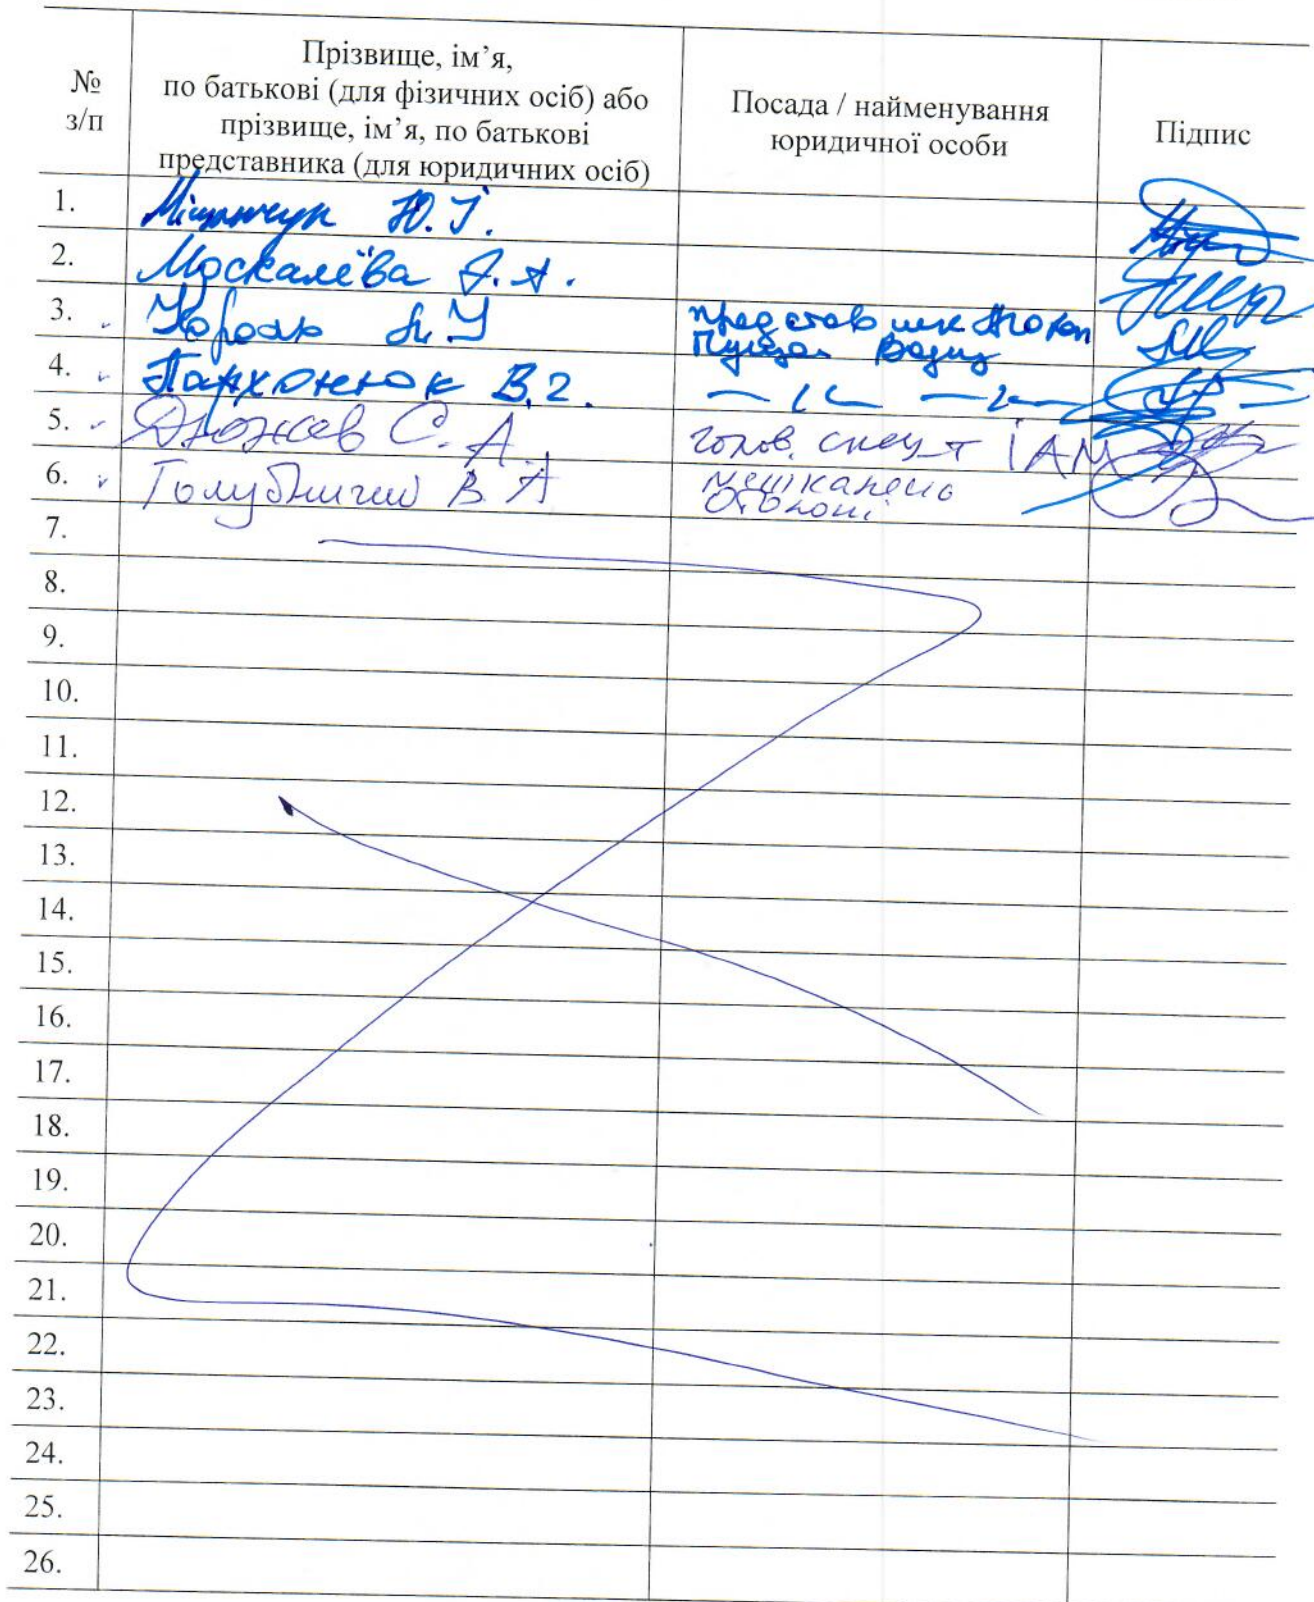 №
з/п
Прізвище, ім’я,
по батькові (для фізичних осіб) або
прізвище, ім’я, по батькові
представника (для юридичних осіб)
Посада / найменування
юридичної особи
Підпис
1. Ю. І.
2. Москалёва А.
3. Король
4. Пархонюк В. Г.
5. Дюжев С. А. голов. спец-т ІАМ
6. Голубничий В А мешканець
Оболоні
7.
8.
9.
10.
11.
12.
13.
14.
15.
16.
17.
18.
19.
20.
21.
22.
23.
24.
25.
26.